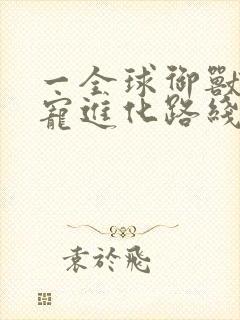 一全球御獸
寵進化路綫
袁於飛